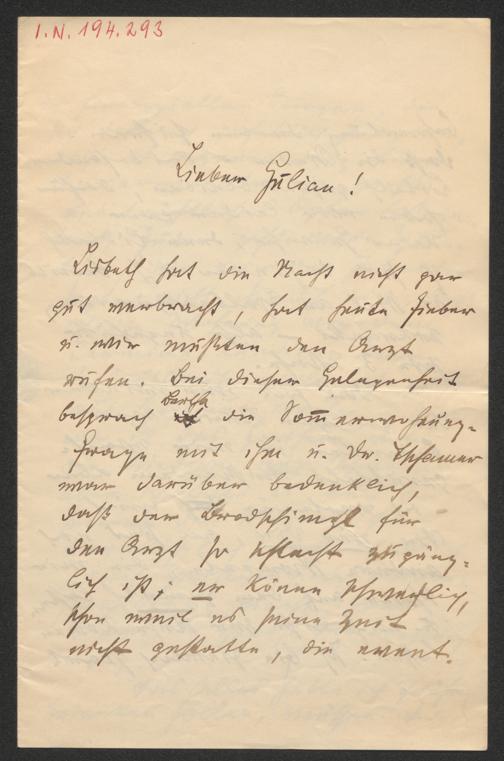 I.N. 194.293
Lieber Julian!
Lisbeth hat die Nacht nicht gar
gut verbracht, hat heute Fieber
u. wir mußten den Arzt
rufen. Bei dieser Gelegenheit
besprach Bertha die Som̅erwohnung-
frage mit ihm u. Dr. Tschamer
war darüber bedenklich,
daß der für
den Arzt so schlecht zugäng-
lich ist; er könne schwerlich,
schon weil es seine Zeit
nicht gestatte, die event.